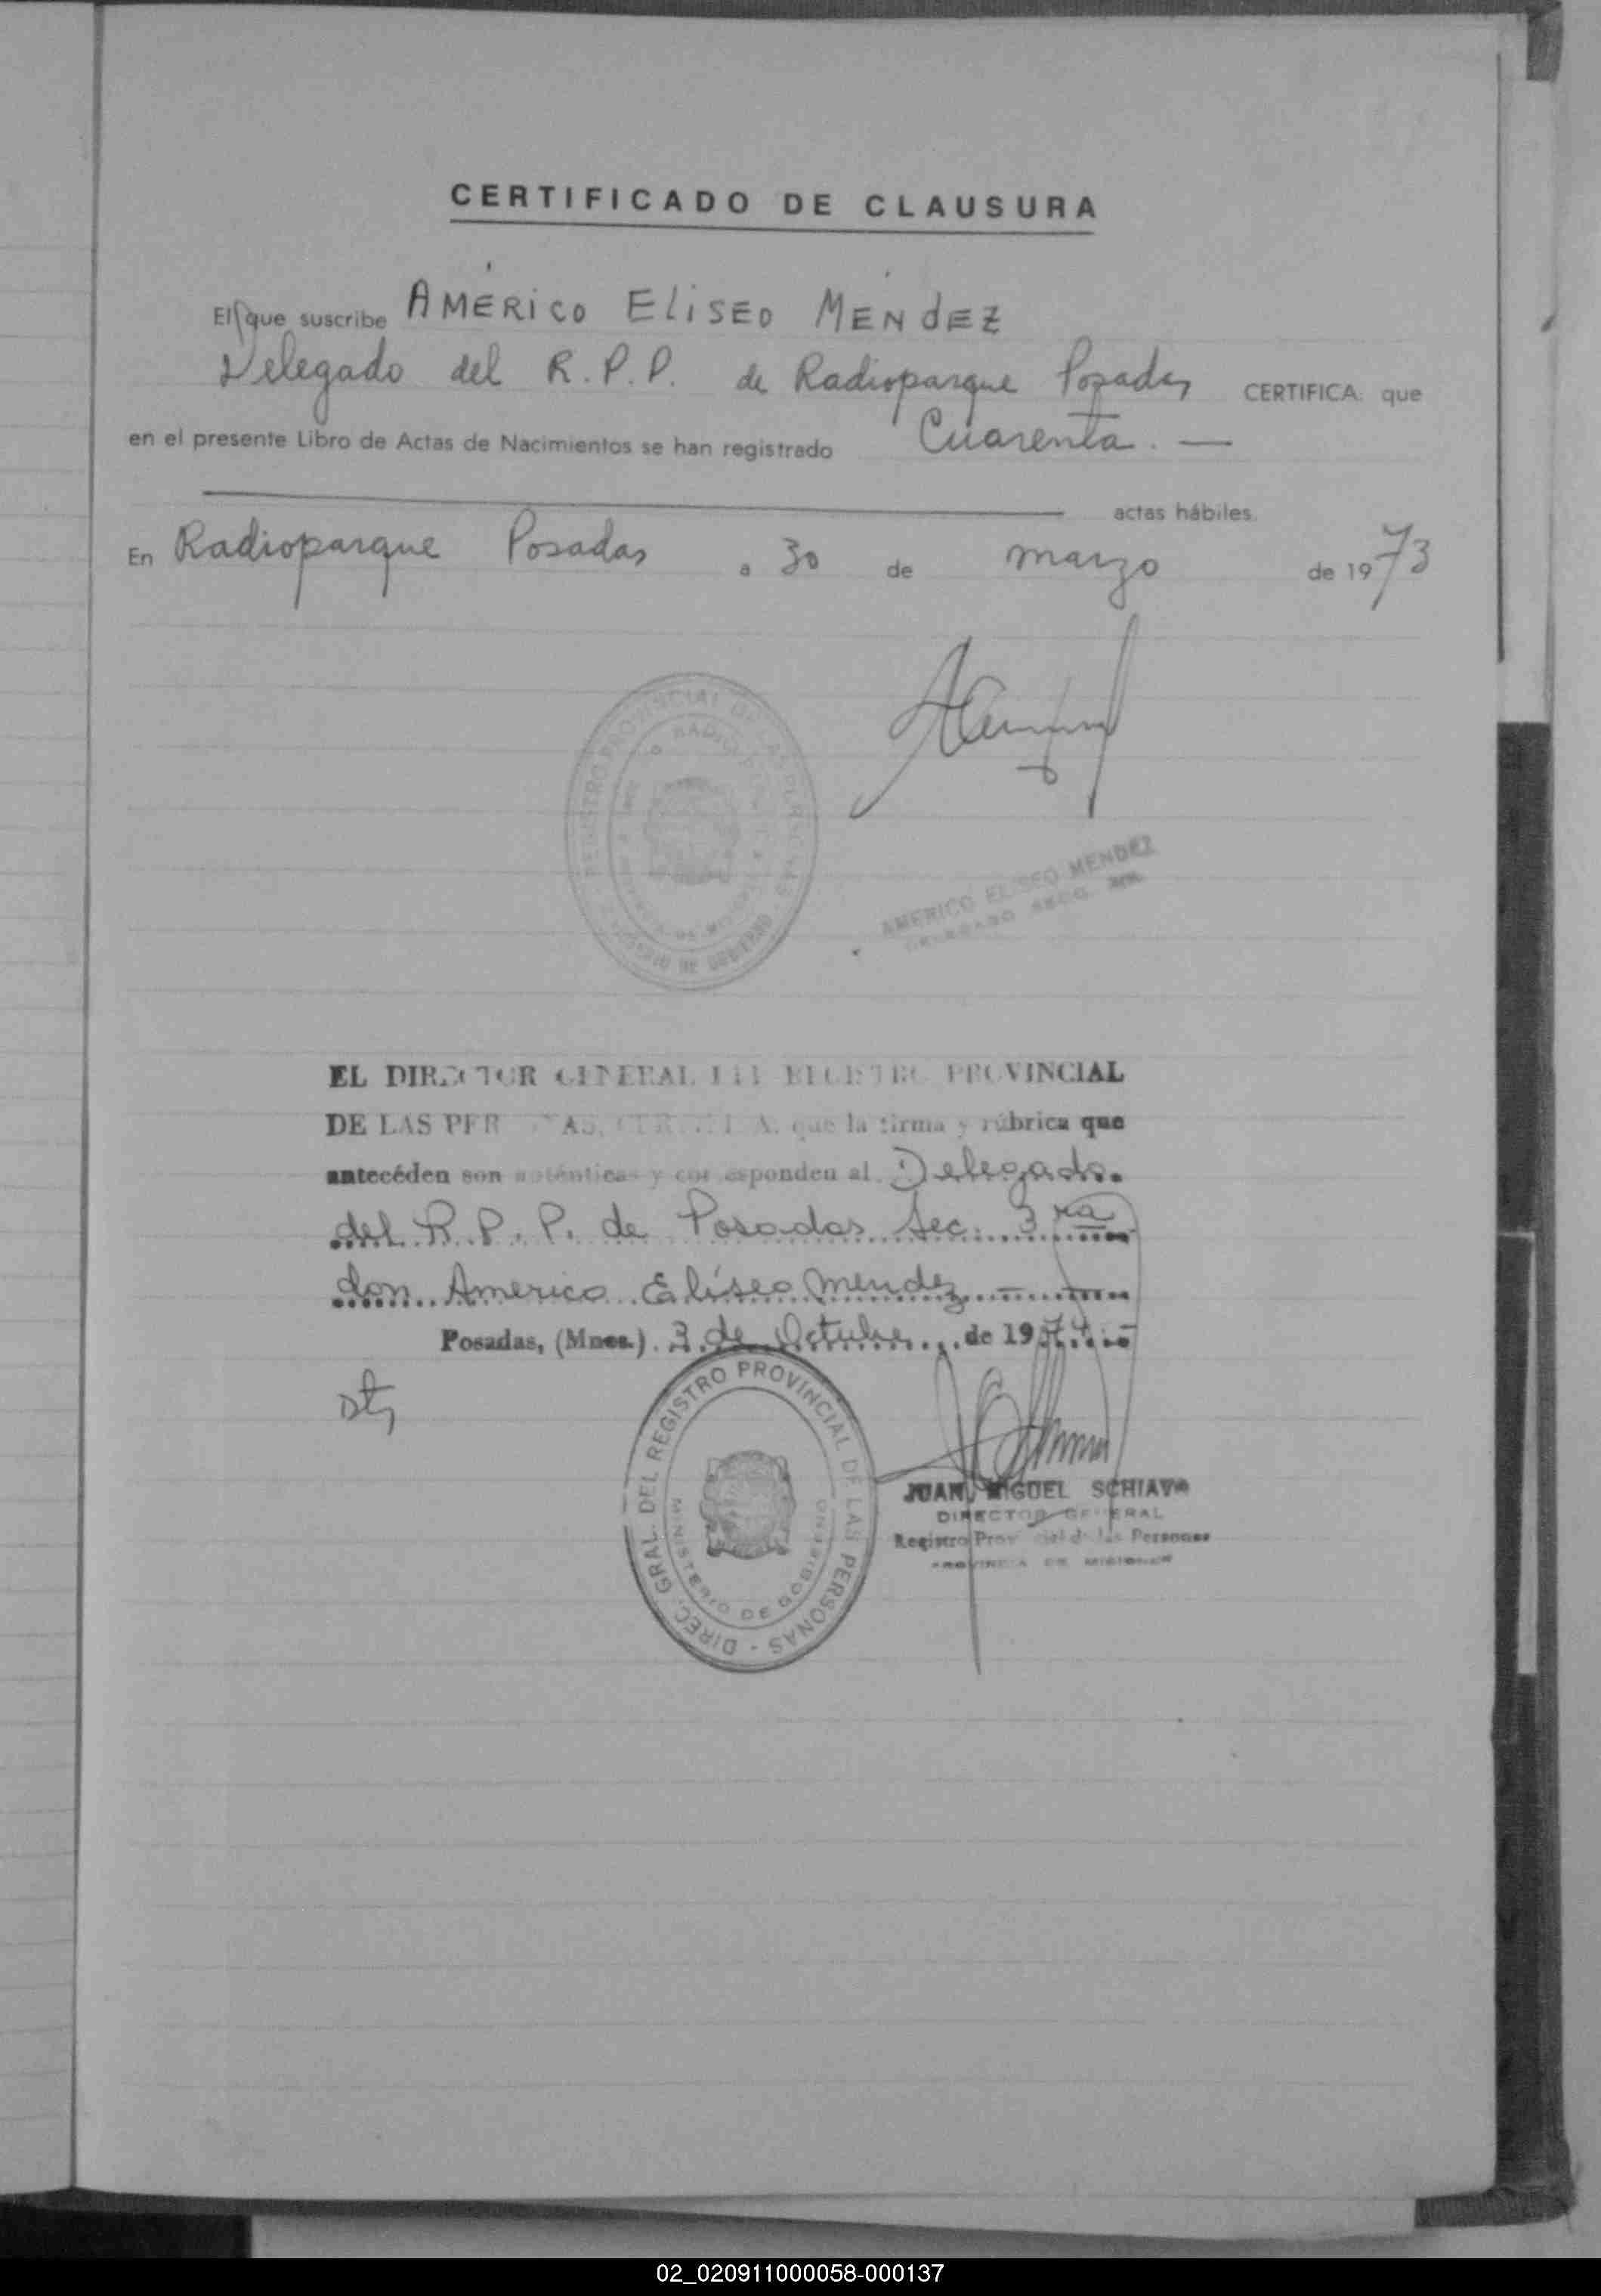 CERTIFICADO DE CLAUSURA
El que suscribe AMÉRICO ELiSEO MÉNdEZ
Delegado del R.P.P. de Radioparque Posadas CERTIFICA: que
en el presente Libro de Actas de Nacimientos se han registrado Cuarenta. —
actas hábiles.
En Radioparque Posadas a 30 de marzo de 1973
REGISTRO PROVINCIAL DE LAS PERSONAS
DE GOBIERNO
AMERICO ELISEO MENDEZ
EL DIRECTOR GENERAL DEL REGISTRO PROVINCIAL
DE LAS PERSONAS, CERTIFICA: que la firma y rúbrica que
antecéden son auténticas y corresponden al Delegado.
del R.P.P. de Posadas Sec. 3ra
don Americo Eliseo Mendez
Posadas, (Mnes.) 3 de Octubre de 1974
DIREC. GRAL. DEL REGISTRO PROVINCIAL DE LAS PERSONAS -
MINISTERIO DE GOBIERNO
JUAN MIGUEL SCHIAVO
DIRECTOR GENERAL
Registro Provincial de las Personas
PROVINCIA DE MISIONES
02_020911000058-000137